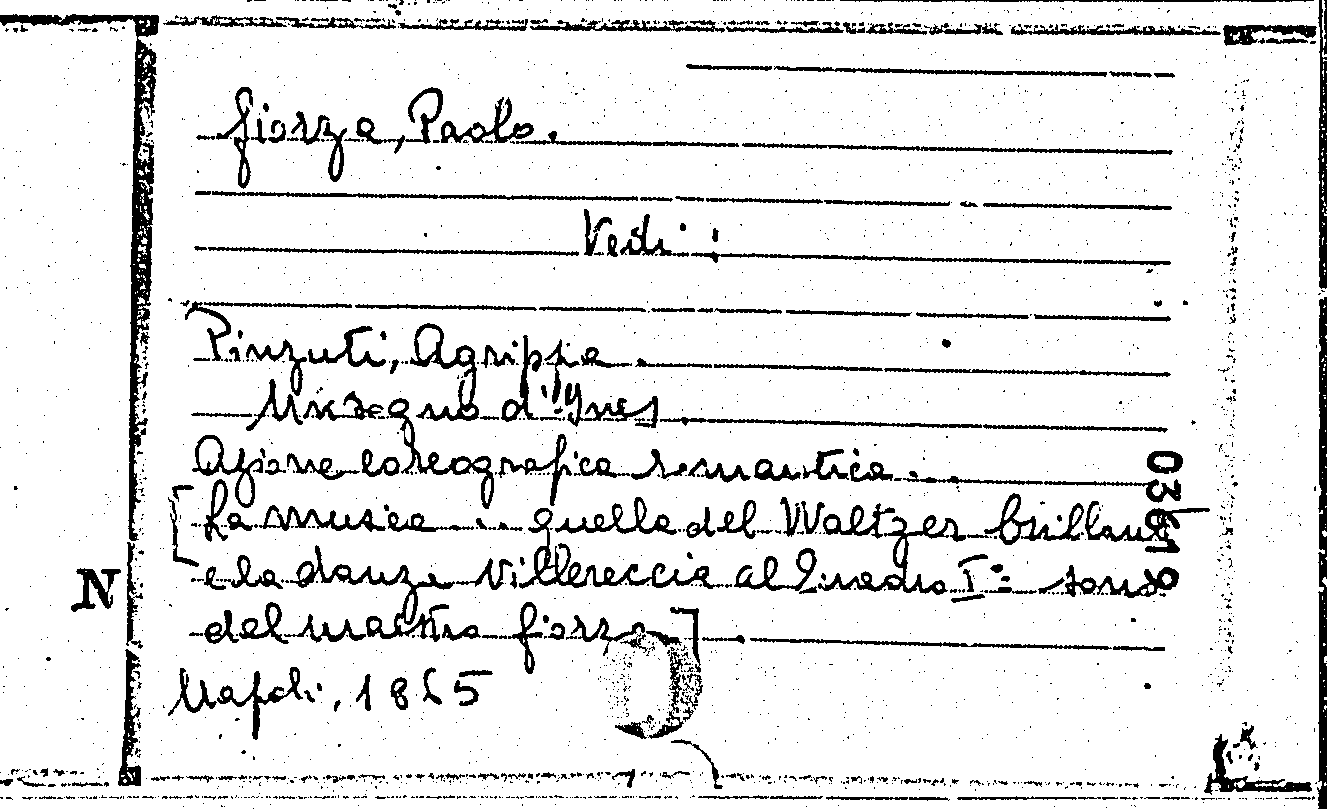 Giorza, Paolo.
Vedi:
Pinzuti, Agrippa.
Un segno d'Ynes.
Azione coreografica romantica...
[La musica ... quella del Waltzer brillante
e la danza villereccia al Quadro I°= sono
del maestro Giorza].
Napoli, 1865
N